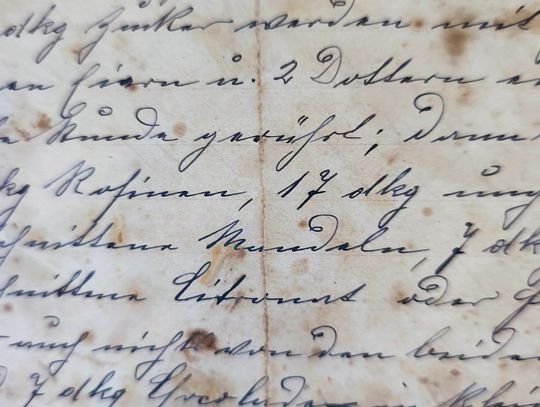 dkg Zucker werden mit
en Eiern u. 2 Dottern
Stunde gerührt; dann
kg Rosinen, 17 dkg ung
chnittene Mandeln, 7 dk
chnittene Citronat oder
auch nicht von den beide
7 dkg Chocolade in klei